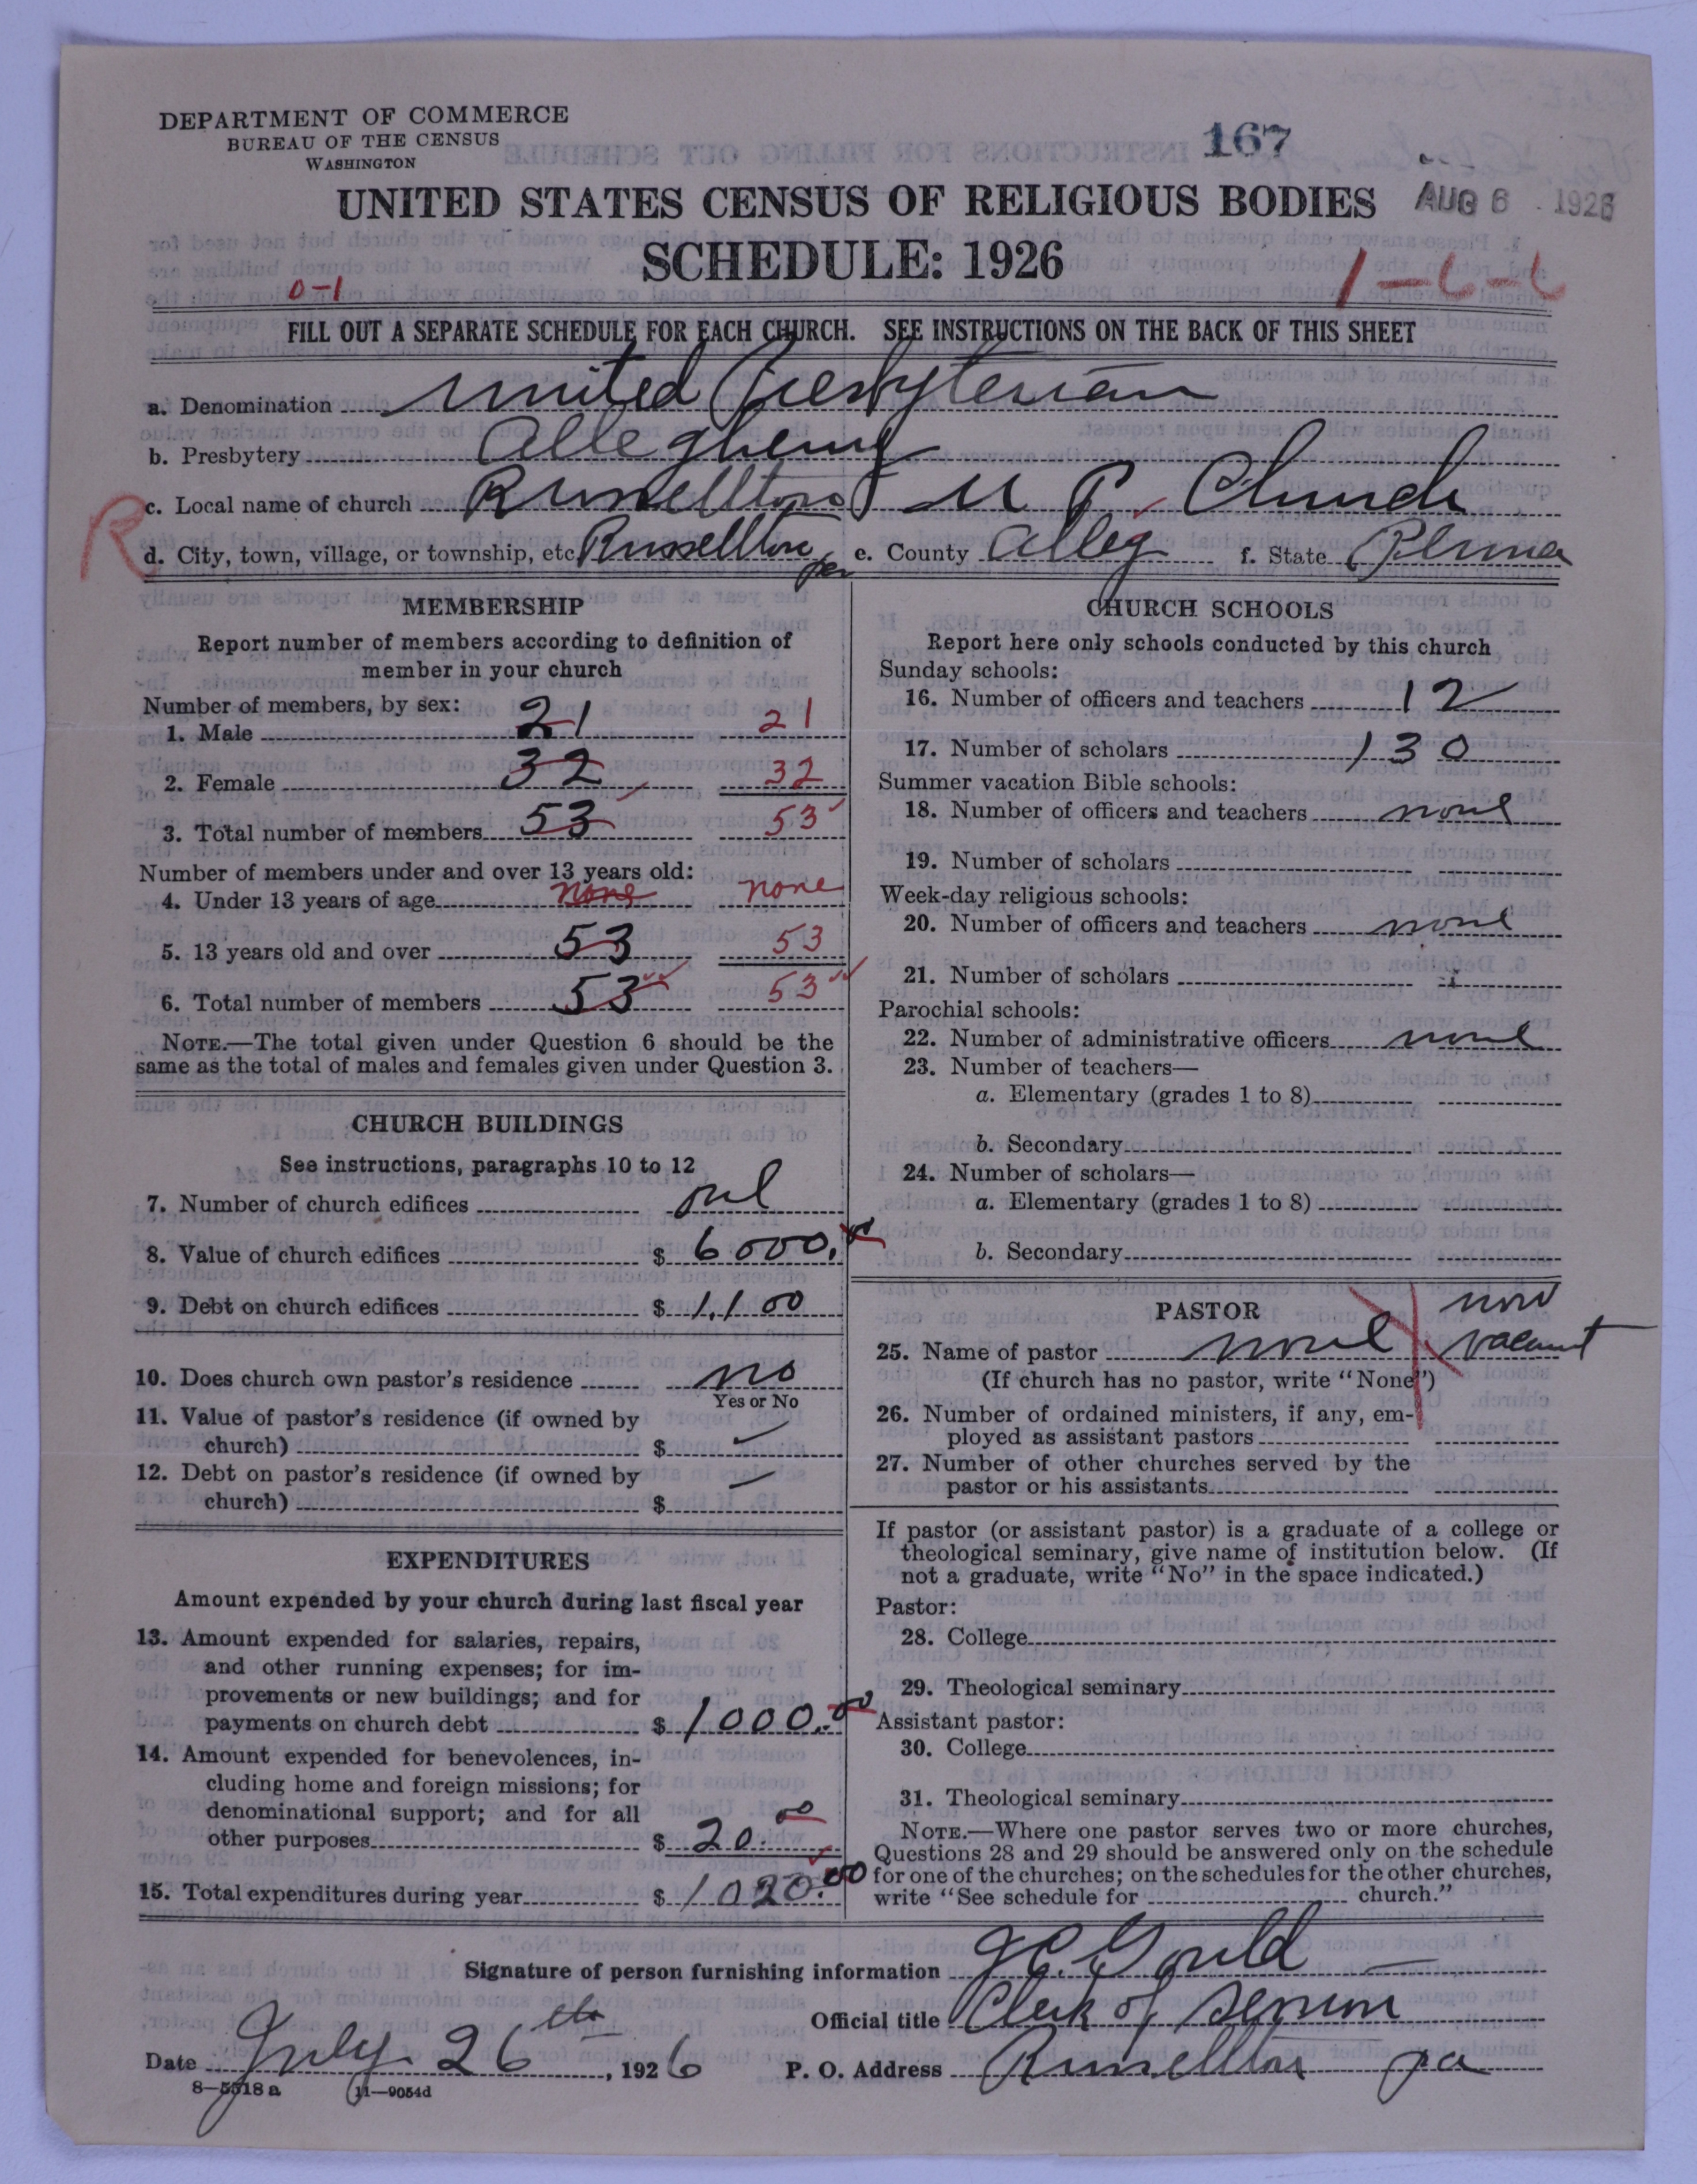 DEPARTMENT OF COMMERCE
BUREAU OF THE CENSUS
WASHINGTON
167
UNITED STATES CENSUS OF RELIGIOUS BODIES
AUG 6 1926
SCHEDULE: 1926
0-1
1-6-6
FILL OUT A SEPARATE SCHEDULE FOR EACH CHURCH. SEE INSTRUCTIONS ON THE BACK OF THIS SHEET
a. Denomination United Presbyterian
b. Presbytery Allegheny
R
c. Local name of church Russellton U P Church
d. City, town, village, or township, etc. Russellton e. County Alleg f. State Penna
MEMBERSHIP
Report number of members according to definition of
member in your church
Number of members, by sex:
1. Male 21 21
2. Female 32 32
3. Total number of members 53 53
Number of members under and over 13 years old:
4. Under 13 years of age none none
5. 13 years old and over 53 53
6. Total number of members 53 53
NOTE.—The total given under Question 6 should be the
same as the total of males and females given under Question 3.
CHURCH BUILDINGS
See instructions, paragraphs 10 to 12
7. Number of church edifices one
8. Value of church edifices $ 6000.00
9. Debt on church edifices $ 1,100
10. Does church own pastor's residence no
Yes or No
11. Value of pastor's residence (if owned by
church) $
12. Debt on pastor's residence (if owned by
church) $
EXPENDITURES
Amount expended by your church during last fiscal year
13. Amount expended for salaries, repairs,
and other running expenses; for im-
provements or new buildings; and for
payments on church debt $ 1000.00
14. Amount expended for benevolences, in-
cluding home and foreign missions; for
denominational support; and for all
other purposes $ 20.00
15. Total expenditures during year $ 1020.00
CHURCH SCHOOLS
Report here only schools conducted by this church
Sunday schools:
16. Number of officers and teachers 12
17. Number of scholars 130
Summer vacation Bible schools:
18. Number of officers and teachers none
19. Number of scholars
Week-day religious schools:
20. Number of officers and teachers none
21. Number of scholars
Parochial schools:
22. Number of administrative officers none
23. Number of teachers—
a. Elementary (grades 1 to 8)
b. Secondary
24. Number of scholars—
a. Elementary (grades 1 to 8)
b. Secondary
PASTOR
now
25. Name of pastor none vacant
(If church has no pastor, write "None")
26. Number of ordained ministers, if any, em-
ployed as assistant pastors
27. Number of other churches served by the
pastor or his assistants
If pastor (or assistant pastor) is a graduate of a college or
theological seminary, give name of institution below. (If
not a graduate, write "No" in the space indicated.)
Pastor:
28. College
29. Theological seminary
Assistant pastor:
30. College
31. Theological seminary
NOTE.—Where one pastor serves two or more churches,
Questions 28 and 29 should be answered only on the schedule
for one of the churches; on the schedules for the other churches,
write "See schedule for church."
Signature of person furnishing information J. C. Gould
Official title Clerk of Session
Date July 26th, 1926 P. O. Address Russellton Pa
8—5518 a 11—9054d